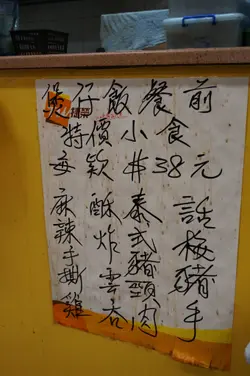 煲仔飯餐前
特價小食
每款 $38元
麻辣手撕雞
酥炸雲吞
泰式豬頸肉
話梅豬手